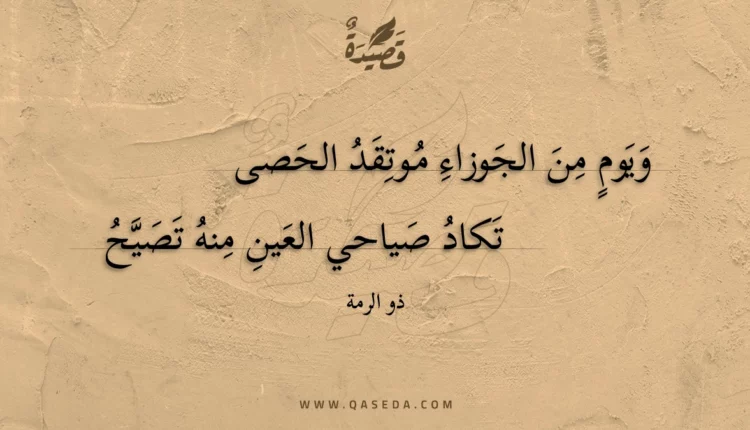 قَصِيدَةٌ
وَيَومٍ مِنَ الجَوزاءِ مُوتِقَدُ الحَصى
تَكادُ صَياحي العَينِ مِنهُ تَصَيَّحُ
ذو الرمة
WWW.QASEDA.COM